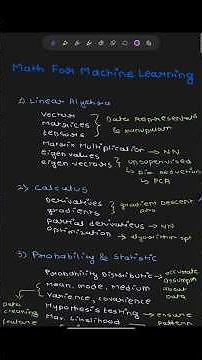 Math For Machine Learning
1) Linear Algebra
Vector
Matrices
tensors
} Data Represent
&
Matrix Multiplication → NN
eigen values
eigen vectors } Unsupervised
↳ Dim reduction
↳ PCA
2) Calculus
Derivatives
gradients } gradient Descent
partial derivatives → NN
Optimization → algorithm opt
3) Probability & Statistic
Probability Distributic → accurate
assumpn
about
Data
Mean, mode, medium
Variance, covarience
Hypothesis testing → ensure
pattern
Max. Likelihood
Data
cleaning
feature